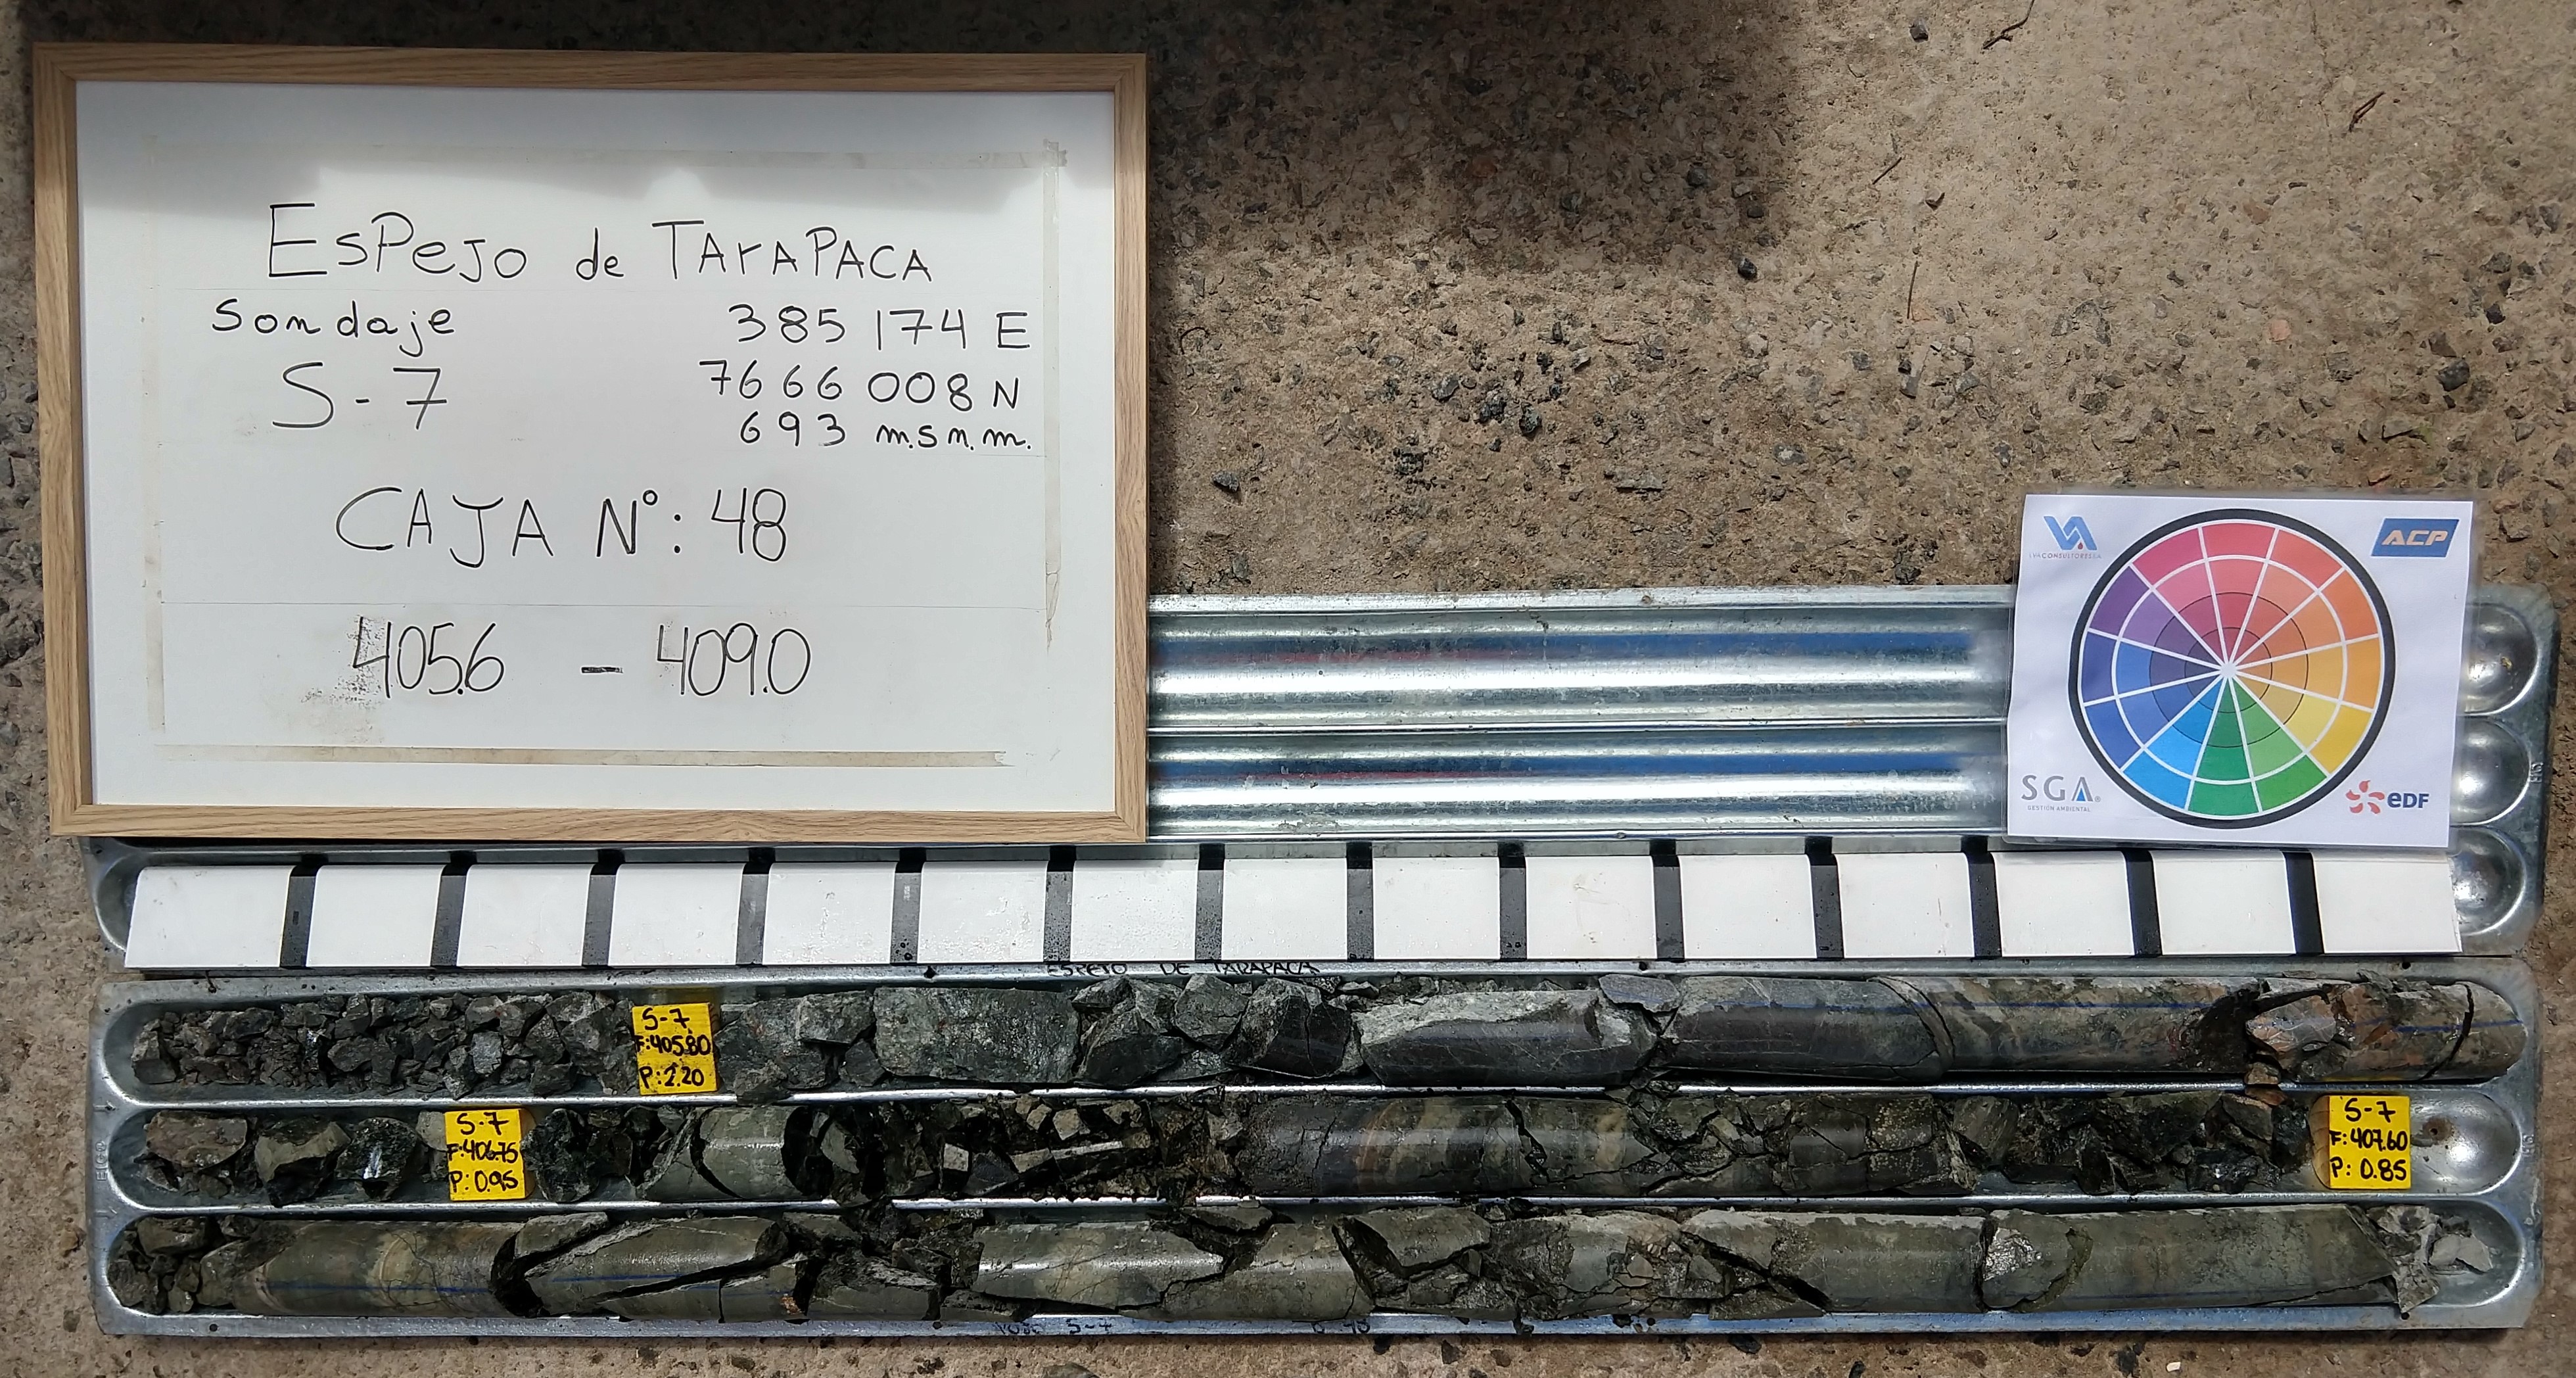 EsPeJo de TArAPACA
Sondaje 385 174 E
S-7 7666 008 N
693 m.s.n.m.
CAJA N°: 48
405.6 - 409.0
ACP
SGA
GESTION AMBIENTAL
eDF
ESPEJO DE TARAPACA
S-7
F:405.80
P:1.20
S-7
F:406.75
P:0.95
S-7
F:407.60
P:0.85
S-7